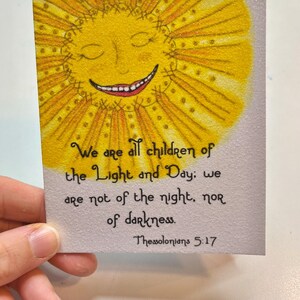 We are all children of
the Light and Day; we
are not of the night, nor
of darkness.
Thessolonians 5:17